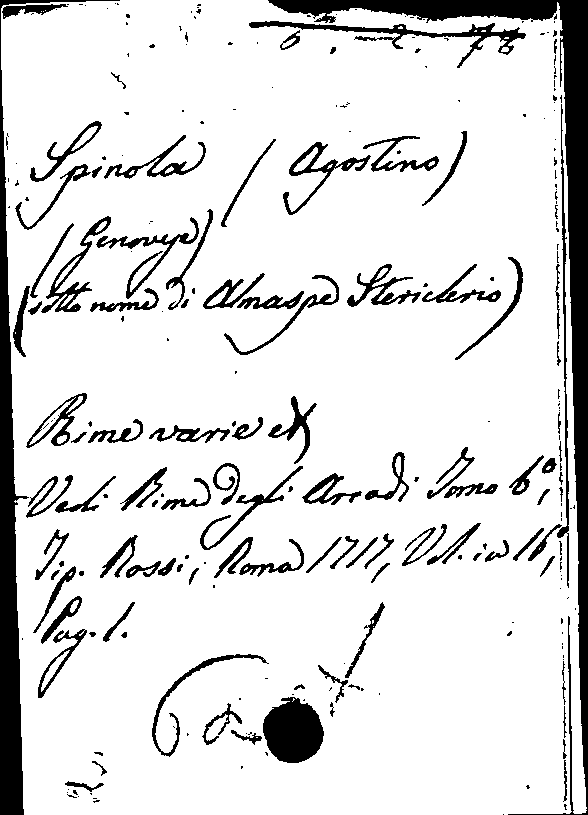 6. 2. 78
Spinola (Agostino)
(Genovese)
(sotto nome di Almaspe Stericlerio)
Rime varie
Vedi Rime degli Arcadi Tomo 6º,
Tip. Rossi, Roma 1717, Vol. in 16º,
Pag. 1.